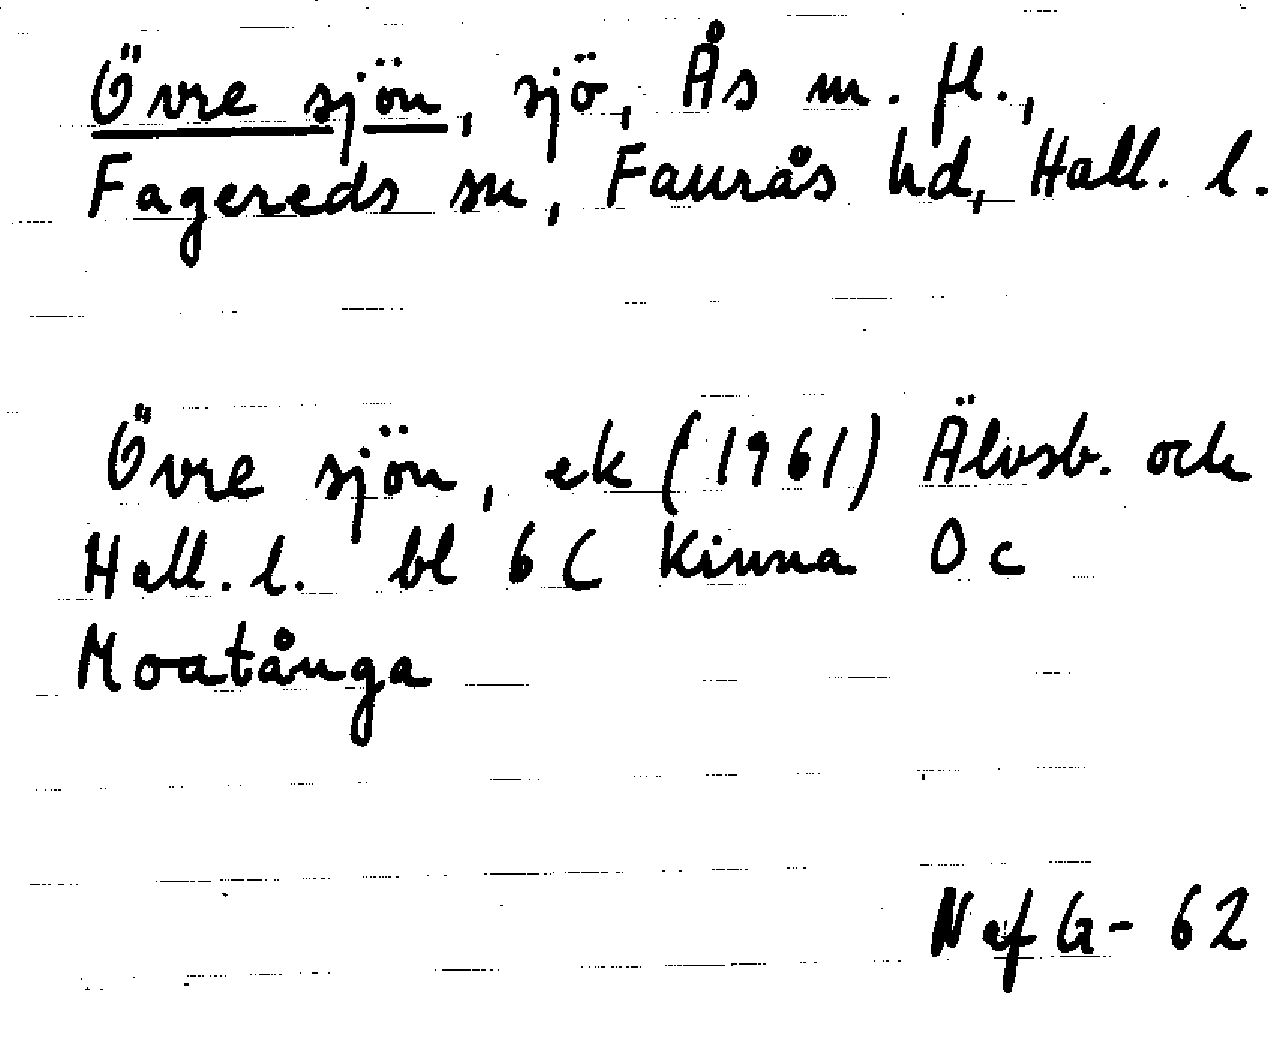 Övre sjön, sjö, Ås m. fl.,
Fagereds sn, Faurås hd, Hall. l.
Övre sjön, ek (1961) Älvsb. och
Hall. l. bl 6 C Kinna 0 c
Moatånga
Nef G-62